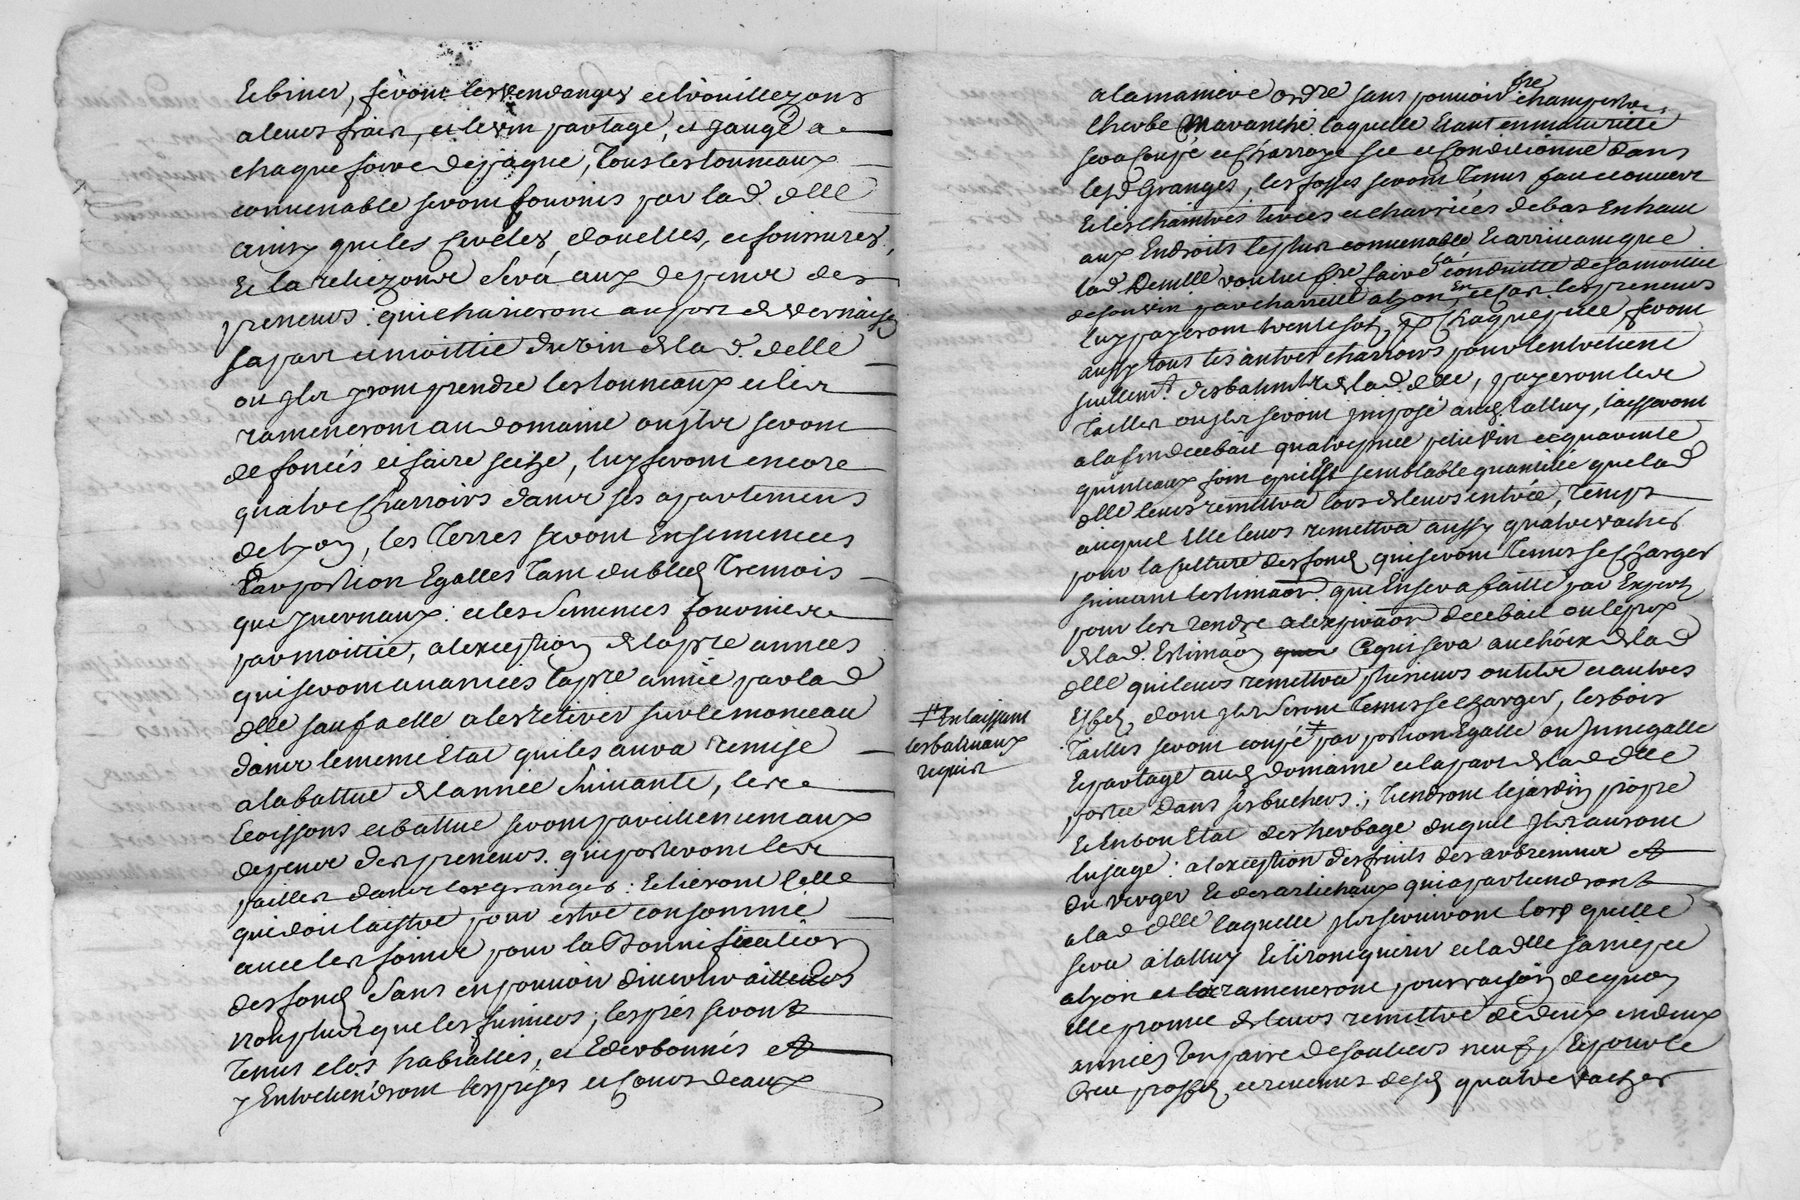 Et biner, feront les vendanges et trouillezons
a leurs frais, et le vin partagé, et jaugé a
chaque foire de paque, Tous les tonneaux
convenable seront fournis par lad. dlle
ainsy que les cercles, douelles, et fonsures,
Et la reliezons sera aux depens des
preneurs: qui charieront au port de vernaison
sa part et moittié du vin de lad. delle
ou jls yront prendre les tonneaux et les
rameneront au domaine ou jls seront
defoncés et faire seche, luy feront encore
quatre charroirs dans ses apartemens
de Lyon, les Terres seront Ensemencés
Par portion Egalles Tant du bled Tremois
que yvernaux: et les semences fournies
par moittié, a l'exception de la pre années
qui seront avancées la pre année par lad
dlle sauf a elle a les retirer sur le monceau
dans le meme Etat qu'il les aura remise
a la battue de l'année suivante, les
moissons et battue seront pareillement aux
depens des preneurs. qui porteront les
pailles dans les granges: Et lieront celle
qui doit l'aistre pour estre consommé
avec les foins pour la Bonnification
des fonds sans en pouvoir divertir ailleurs
non plus que les fumiers; les prés seront
Tenus clos habiallés, et Ederbonnés et
y Entretiendront les prises et cours deaux
a la maniere ordre sans pouvoir fre champestre
l'herbe Mavanche laquelle Etant en maturitté
sera coupé et charroyé sec et conditionné dans
lesd Granges, les fosses seront Tenus fait et ouvert
Et les chaintres tirées et charriées de bas En haut
aux Endroits les plus convenable Et arrivant que
lad Demlle voulut fre faire la conduitte de sa moittié
de son vin par charrette a Lyon En ce cas les preneurs
luy payeront trente sols pr chaque piece, feront
aussy tous les autres charrois pour l'entretient
seullemt des batimts de lad. dlle, payeront les
Tailles ou jls seront jmposé aud talluy, laisseront
a la fin de ce bail quatre piece petit vin et quarante
quinteaux foin qui Est semblable quantité que lad
dlle leurs remettra lors de leurs entrée, Temps
auquel Elle leurs remettra aussy quatre vaches
pour la culture des fonds qui seront Tenus se charger
suivant l'estimaon que En sera faitte par Experts
pour les rendre a l'expiraon de ce bail ou le prix
de lad. Estimaon Ce qui sera au choix de lad
dlle qui leurs remettra plusieurs outils et autres
Effets dont jls seront Tenus se charger, les bois
Taillis seront coupé # par portion Egalle ou Innegalle
Et partagé aud domaine et la part de lad dlle
portée dans ses buchers:, Tiendront le jardin propre
Et En bon Etat des herbage duquel jls auront
l'usage: a l'exception des fruits des arbres nins et
du verger Et des artichaux qui apartiendront
a lad dlle laquelle jls serviront lors quelle
sera a talluy Et l'iront querir et lad dlle sa niepce
a lyon et la rameneront, pour raison de quoy
Elle promet de leurs remettre de deux en deux
années Une paire de souliers neufs, Et pour le
Creu profits, et revenus desd quatre vaches
# En laissant
les baliveaux
requis